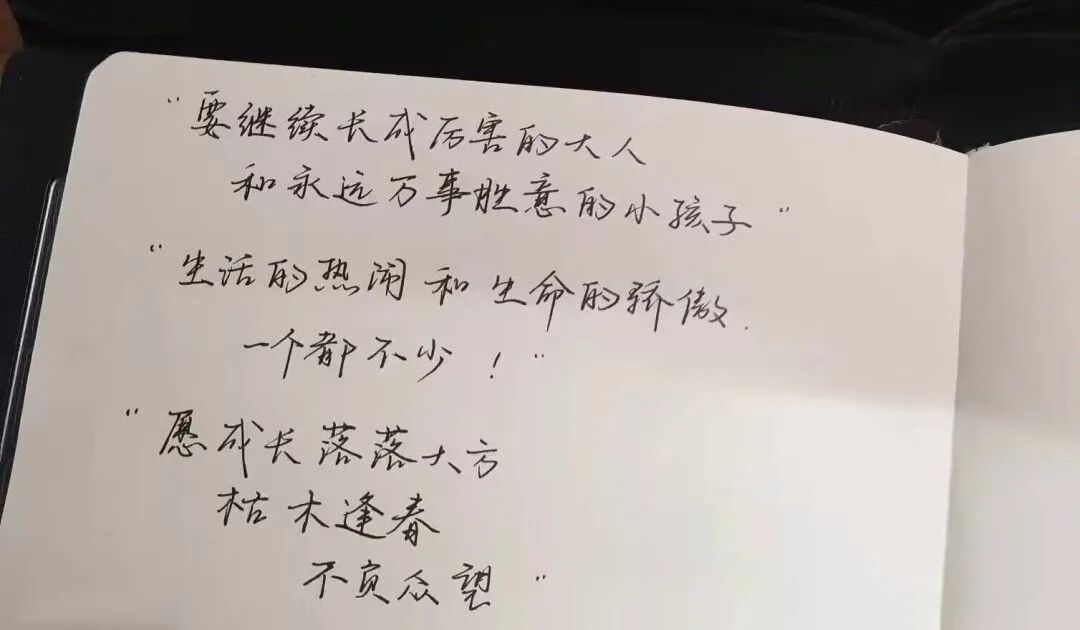 “要继续长成厉害的大人
和永远万事胜意的小孩子”
“生活的热闹和生命的骄傲.
一个都不少！”
“愿成长落落大方
枯木逢春
不负众望”